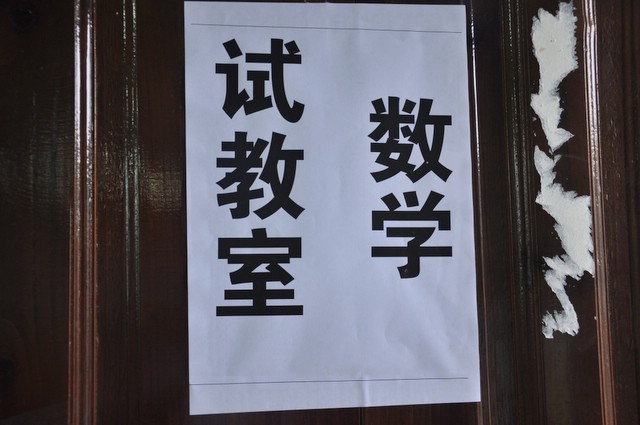 数学
试教室